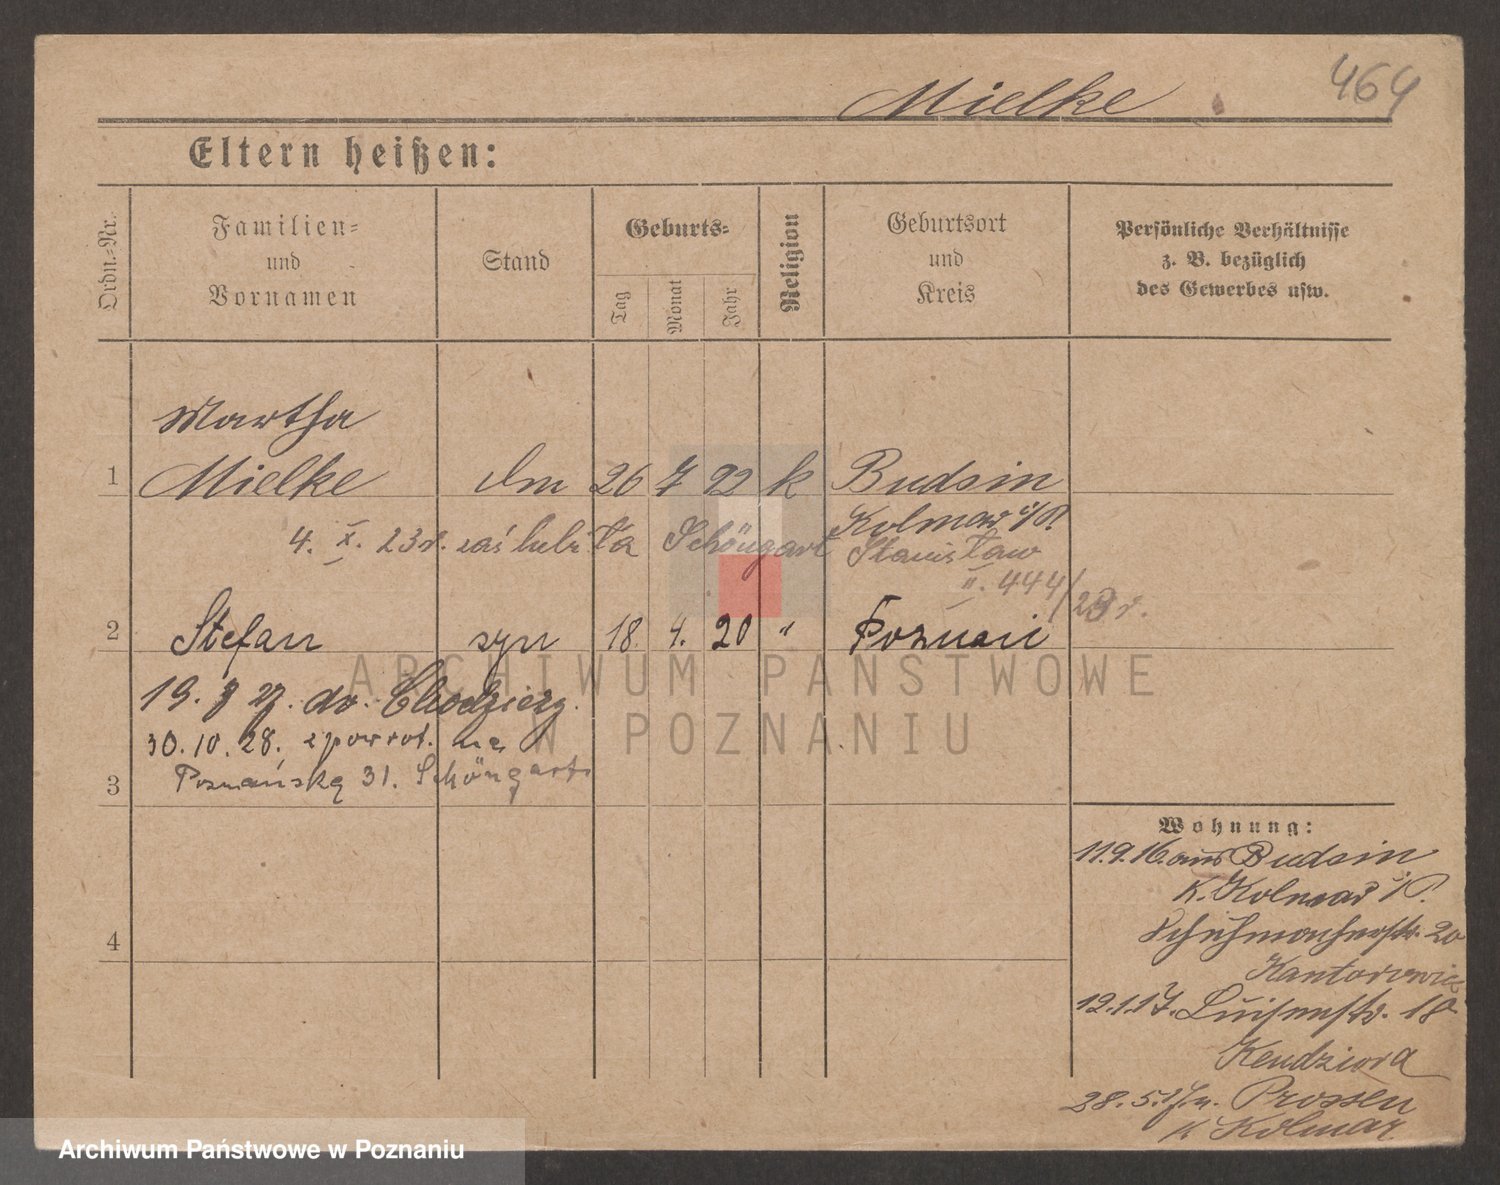 464
Mielke
Eltern heißen:
Ordn.-Nr.
Familien-
und
Vornamen
Stand
Geburts-
Tag
Monat
Jahr
Religion
Geburtsort
und
Kreis
Persönliche Verhältnisse
z. B. bezüglich
des Gewerbes usw.
Martha
1 Mielke 26 7 92 k Budsin
Kolmar i/P.
4. X. 23 r. zaślubiła Schöngart Stanisław
II. 444/23 r.
2 Stefan syn 18. 4. 20 " Poznań
19. 8 27. do. Chodzież.
30. 10. 28. zpowrot. na
Poznańską 31. Schöngart
3
4
Wohnung:
11.9.16. aus Budsin
K. Kolmar i/P.
Schuhmacherstr. 20
Kantorowicz
12.1.17. Luisenstr. 18
Kendziora
28. 5. 17. n. Prossen
K Kolmar
ARCHIWUM PAŃSTWOWE
W POZNANIU
Archiwum Państwowe w Poznaniu